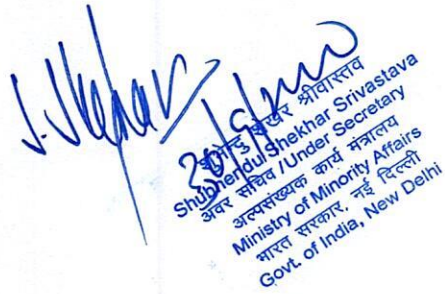 S. Shekhar
30/9/2020
शुभेन्दु शेखर श्रीवास्तव
Shubhendu Shekhar Srivastava
अवर सचिव / Under Secretary
अल्पसंख्यक कार्य मंत्रालय
Ministry of Minority Affairs
भारत सरकार, नई दिल्ली
Govt. of India, New Delhi